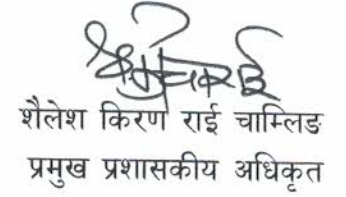 शैलेश किरण राई चाम्लिङ
प्रमुख प्रशासकीय अधिकृत